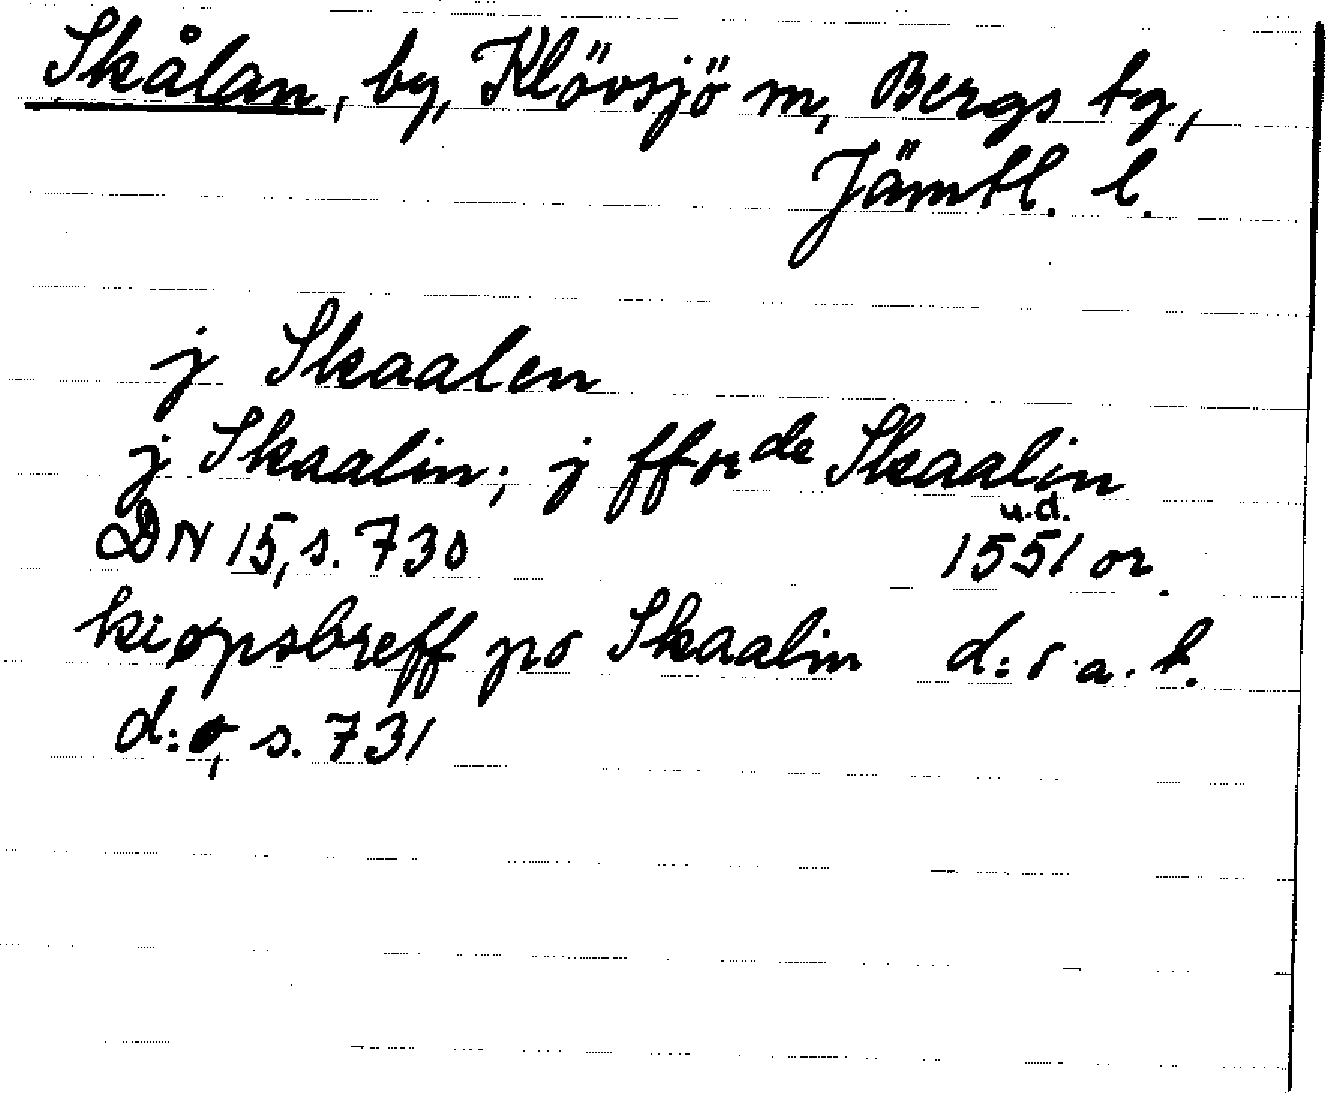 Skålan, by, Klövsjö m, Bergs tg,
Jämtl. l.
j Skaalen
j Skaalin; j fforde Skaalin
DN 15, s. 730 u.d. 1551 or.
kiøpsbreff po Skaalin d:o a.k.
d:o, s. 731